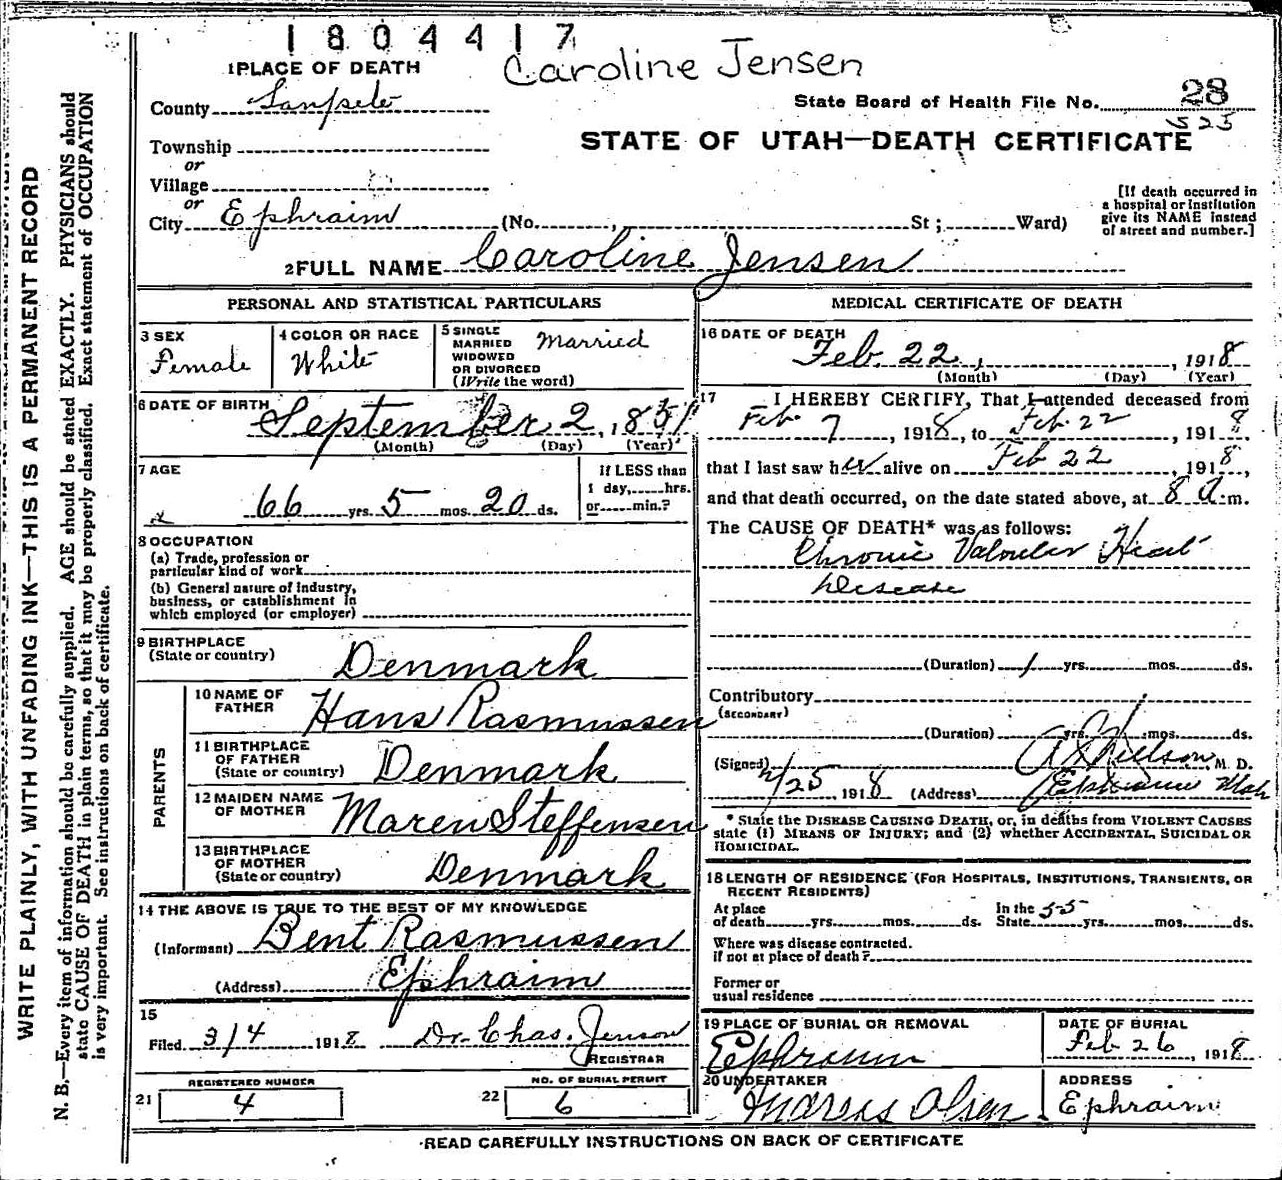 1804417
Caroline Jensen
1 PLACE OF DEATH
County Sanpete
State Board of Health File No. 28
STATE OF UTAH—DEATH CERTIFICATE
Township
or
Village
or
City Ephraim (No. St; Ward)
[If death occurred in
a hospital or institution
give its NAME instead
of street and number.]
2 FULL NAME Caroline Jensen
PERSONAL AND STATISTICAL PARTICULARS
3 SEX
Female
4 COLOR OR RACE
White
5 SINGLE
MARRIED
WIDOWED
OR DIVORCED
(Write the word)
Married
6 DATE OF BIRTH
September 2, 1851
(Month) (Day) (Year)
7 AGE
66 yrs. 5 mos. 20 ds.
If LESS than
1 day, hrs.
or min.?
8 OCCUPATION
(a) Trade, profession or
particular kind of work
(b) General nature of industry,
business, or establishment in
which employed (or employer)
9 BIRTHPLACE
(State or country)
Denmark
PARENTS
10 NAME OF
FATHER
Hans Rasmussen
11 BIRTHPLACE
OF FATHER
(State or country)
Denmark
12 MAIDEN NAME
OF MOTHER
Maren Steffensen
13 BIRTHPLACE
OF MOTHER
(State or country)
Denmark
14 THE ABOVE IS TRUE TO THE BEST OF MY KNOWLEDGE
(Informant) Bent Rasmussen
(Address) Ephraim
15
Filed 3/4 1918 Dr. Chas. Jenson
REGISTRAR
REGISTERED NUMBER
21 4
NO. OF BURIAL PERMIT
22 6
MEDICAL CERTIFICATE OF DEATH
16 DATE OF DEATH
Feb. 22, 1918
(Month) (Day) (Year)
17 I HEREBY CERTIFY, That I attended deceased from
Feb 7, 1918, to Feb 22, 1918,
that I last saw her alive on Feb 22, 1918,
and that death occurred, on the date stated above, at 8 a.m.
The CAUSE OF DEATH* was as follows:
Chronic Valvular Heart
Disease
(Duration) 1 yrs. mos. ds.
Contributory
(SECONDARY)
(Duration) yrs. mos. ds.
(Signed) Nielson, M. D.
2/25 1918 (Address) Ephraim Utah
* State the DISEASE CAUSING DEATH, or, in deaths from VIOLENT CAUSES
state (1) MEANS OF INJURY; and (2) whether ACCIDENTAL, SUICIDAL OR
HOMICIDAL.
18 LENGTH OF RESIDENCE (FOR HOSPITALS, INSTITUTIONS, TRANSIENTS, OR
RECENT RESIDENTS)
At place
of death yrs. mos. ds.
In the
State 55 yrs. mos. ds.
Where was disease contracted.
if not at place of death?
Former or
usual residence
19 PLACE OF BURIAL OR REMOVAL
Ephraim
DATE OF BURIAL
Feb 26, 1918
20 UNDERTAKER
Andreas Olsen
ADDRESS
Ephraim
READ CAREFULLY INSTRUCTIONS ON BACK OF CERTIFICATE
WRITE PLAINLY, WITH UNFADING INK—THIS IS A PERMANENT RECORD
N. B.—Every item of information should be carefully supplied. AGE should be stated EXACTLY. PHYSICIANS should
state CAUSE OF DEATH in plain terms, so that it may be properly classified. Exact statement of OCCUPATION
is very important. See instructions on back of certificate.